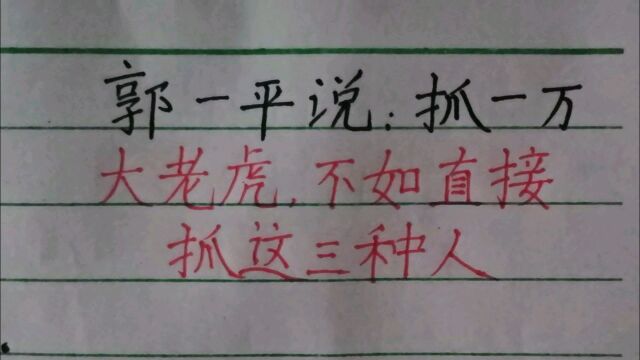 郭一平说：抓一万
大老虎，不如直接
抓这三种人